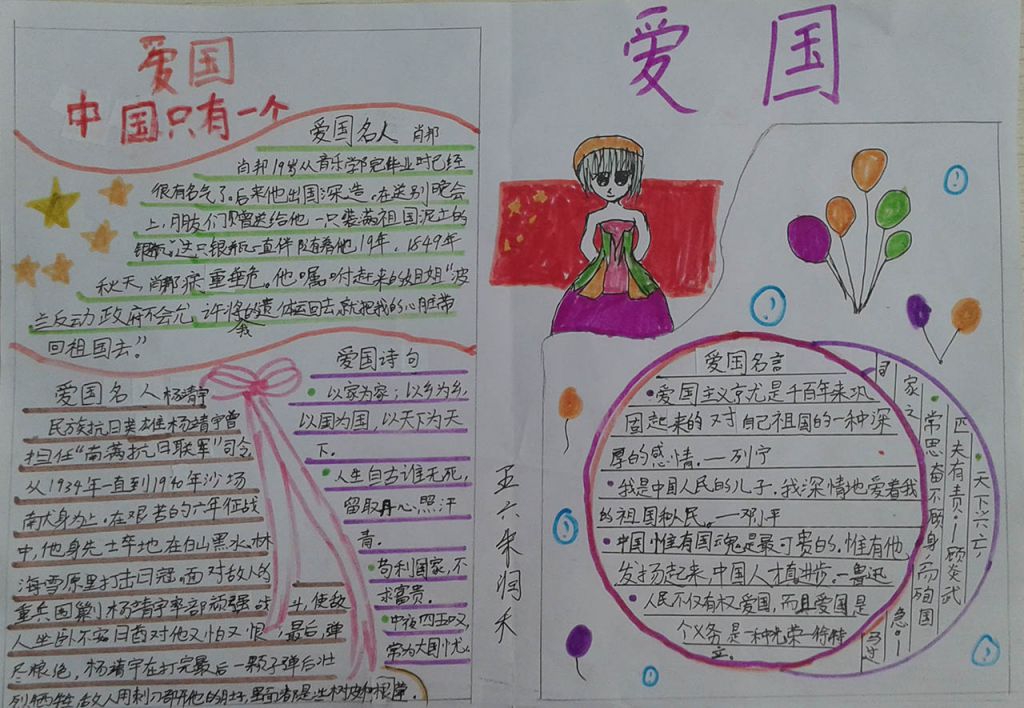 爱国
中国只有一个
爱国名人 肖邦
肖邦19岁从音乐学院毕业时已经
很有名气了。后来他出国深造。在送别晚会
上,朋友们赠送给他一只装满祖国泥土的
银瓶。这只银瓶一直伴随着他19年,1849年
秋天,肖邦病重垂危。他嘱咐赶来的姐姐“波
兰反动政府不会允许将的遗体运回去,就把我的心脏带
回祖国去。”
爱国名人杨靖宇
民族抗日英雄杨靖宇曾
担任“南满抗日联军”司令
从1934年一直到1940年沙场
献身为止。在艰苦的六年征战
中,他身先士卒地在白山黑水,林
海雪原里打击日寇。面对敌人的
重兵围剿杨靖宇率部顽强战斗,使敌
人坐卧不安日酋对他又怕又恨;最后,弹
尽粮绝,杨靖宇在打完最后一颗子弹后壮
烈牺牲敌人用刺刀
爱国诗句
以家为家;以乡为乡,
以国为国,以天下为天
下.
人生自古谁无死,
留取丹心照汗
青.
苟利国家,不
求富贵.
中夜四五叹,
常为大国忧.
五六朱润禾
爱国
爱国名言
爱国主义京尤是千百年来巩
固起来的对自己祖国的一种深
厚的感情.一列宁
我是中国人民的儿子.我深情地爱着我
的祖国和人民。一邓小平
中国惟有国魂是最可贵的.惟有他
发扬起来,中国人才有进步.一鲁迅
人民不仅有权爱国,而且爱国是
个义务是一种光荣一
天下兴亡,
匹夫有责!一顾炎武
常思奋不顾身,而殉国
家之急!一
司马迁